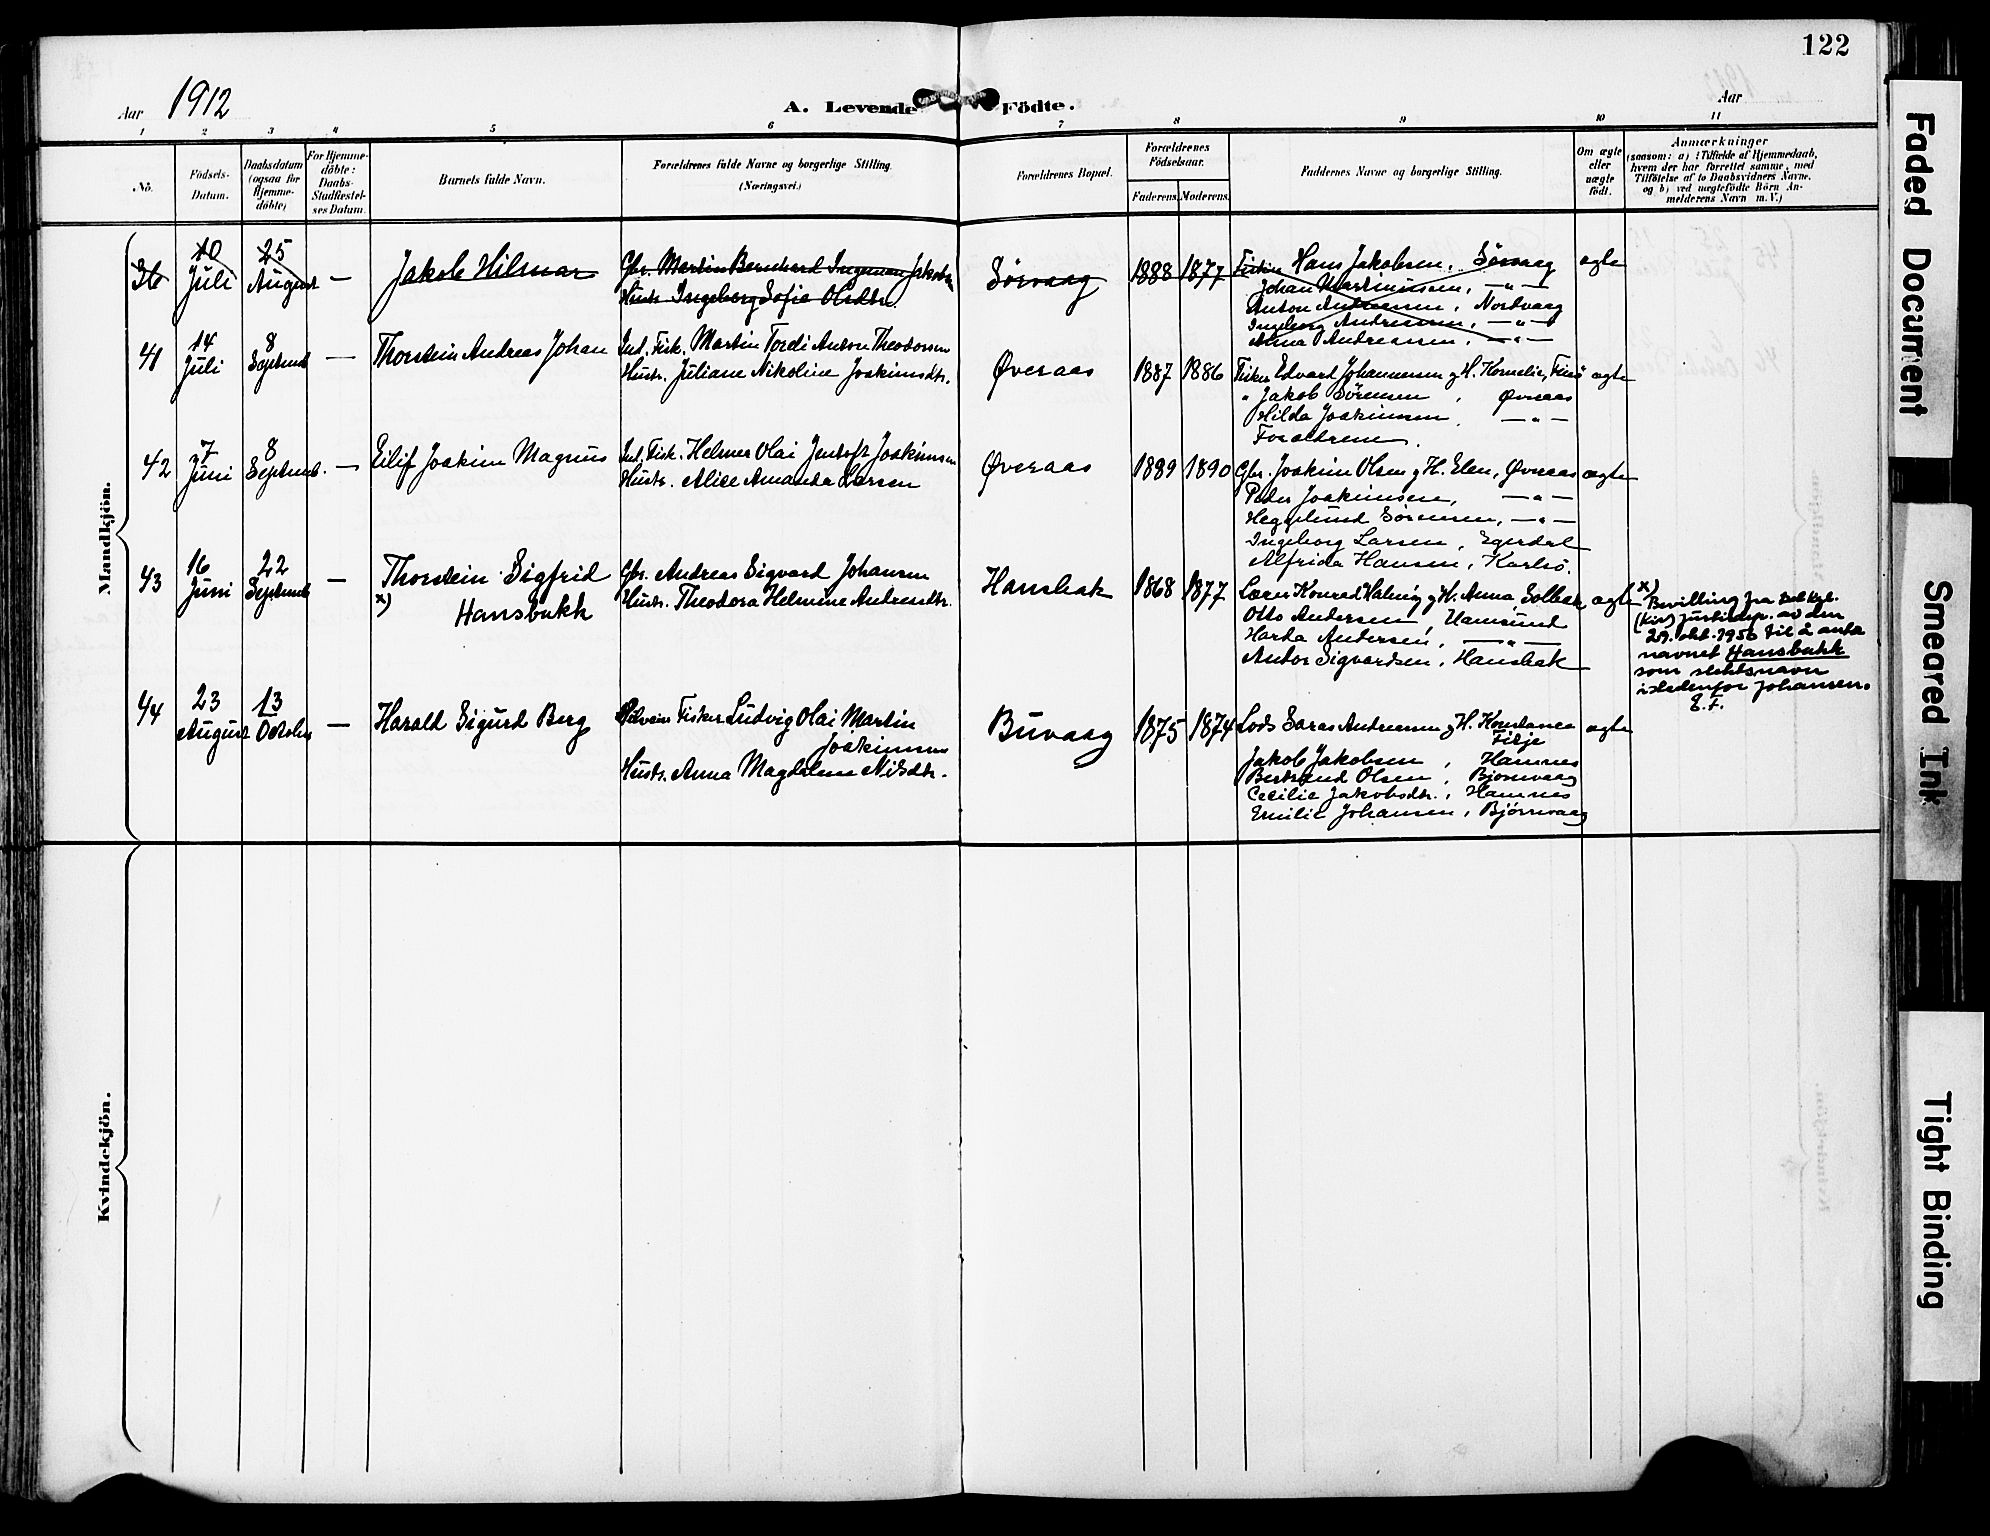 122
Aar 1912
A. Levende Födte.
Aar
1 2 3 4 5 6 7 8 9 10 11
No.
Födsels-
Datum.
Daabsdatum
(ogsaa for
Hjemme-
döbte)
For Hjemme-
döbte:
Daabs-
Stadfæstel-
ses Datum.
Barnets fulde Navn.
Forældrenes fulde Navne og borgerlige Stilling.
(Næringsvei.)
Forældrenes Bopæl.
Forældrenes
Födselsaar.
Faderens. Moderens.
Faddernes Navne og borgerlige Stilling.
Om ægte
eller
uægte
födt.
Anmærkninger
(saasom: a) i Tilfælde af Hjemmedaab,
hvem der har forrettet samme, med
Tilföielse af to Daabsvidners Navne,
og b) ved uægtefödte Börn An-
melderens Navn m. V.)
Mandkjön.
36
10
Juli
25
August
—
Jakob Hilmar
Gbr. Martin Bernhard Ingeman Jakobs
Hustr. Ingeborg Sofie Olsdtr.
Sørvaag
1888 1877
Fisker Hans Jakobsen, Sørvaag
Johan Martinussen, — " —
Anton Andreassen, Nordvaag
Ingeborg Andreassen, — " —
Anna Andreassen, — " —
ægte
41
14
Juli
8
Septemb
—
Thorstein Andreas Johan
Ind. Fisk. Martin Tordi Anton Theodorsen
Hustr. Juliane Nikoline Joakimsdtr.
Øveraas
1887 1886
Fisker Edvart Johannessen og H. Kornelie, Finsø
" Jakob Sørensen, Øveraas
Hilda Joakimsen, — " —
Forældrene.
ægte
42
7
Juni
8
Septemb.
—
Eilif Joakim Magnus
Ind. Fisk. Helmer Olai Jentoft Joakimsen
Hustr. Alice Amanda Larsen
Øveraas
1889 1890
Gbr. Joakim Olsen og H. Elen, Øveraas
Peder Joakimsen, — " —
Hegglund Sørensen, — " —
Ingeborg Larsen, Egerdal
Alfrida Hansen, Karlsø.
ægte
43
16
Juni
22
Septemb
—
Thorstein Sigfrid
x) Hansbakk
Gbr. Andreas Sigvard Johansen
Hustr. Theodora Helmine Andreasdtr.
Hansbak
1868 1877
Lærer Konrad Halvig og H. Anna, Solbak
Otto Andersen, Hamsund
Harda Andersen, — " —
Anton Sigvardsen, Hansbak
ægte
x) Bevilling fra Det Kgl.
(Kirk) justisdep. av den
29. okt. 1950 til å anta
navnet Hansbakk
som slektsnavn
istedenfor Johansen.
E. F.
44
23
August
13
Octobr
—
Harald Sigurd Berg
Selveier Fisker Ludvig Olai Martin
Joakimsen
Hustr. Anna Magdalena Nilsdtr.
Buvaag
1875 1874
Lods Lars Andreassen og H. Konstance
Filje
Jakob Jakobsen, Hamnes
Bertrand Olsen, Bjornvaag
Cecilie Jakobsdtr., Hamnes
Emilie Johansen, Bjørnvaag
ægte
Kvindekjön.
Faded Document
Smeared Ink
Tight Binding